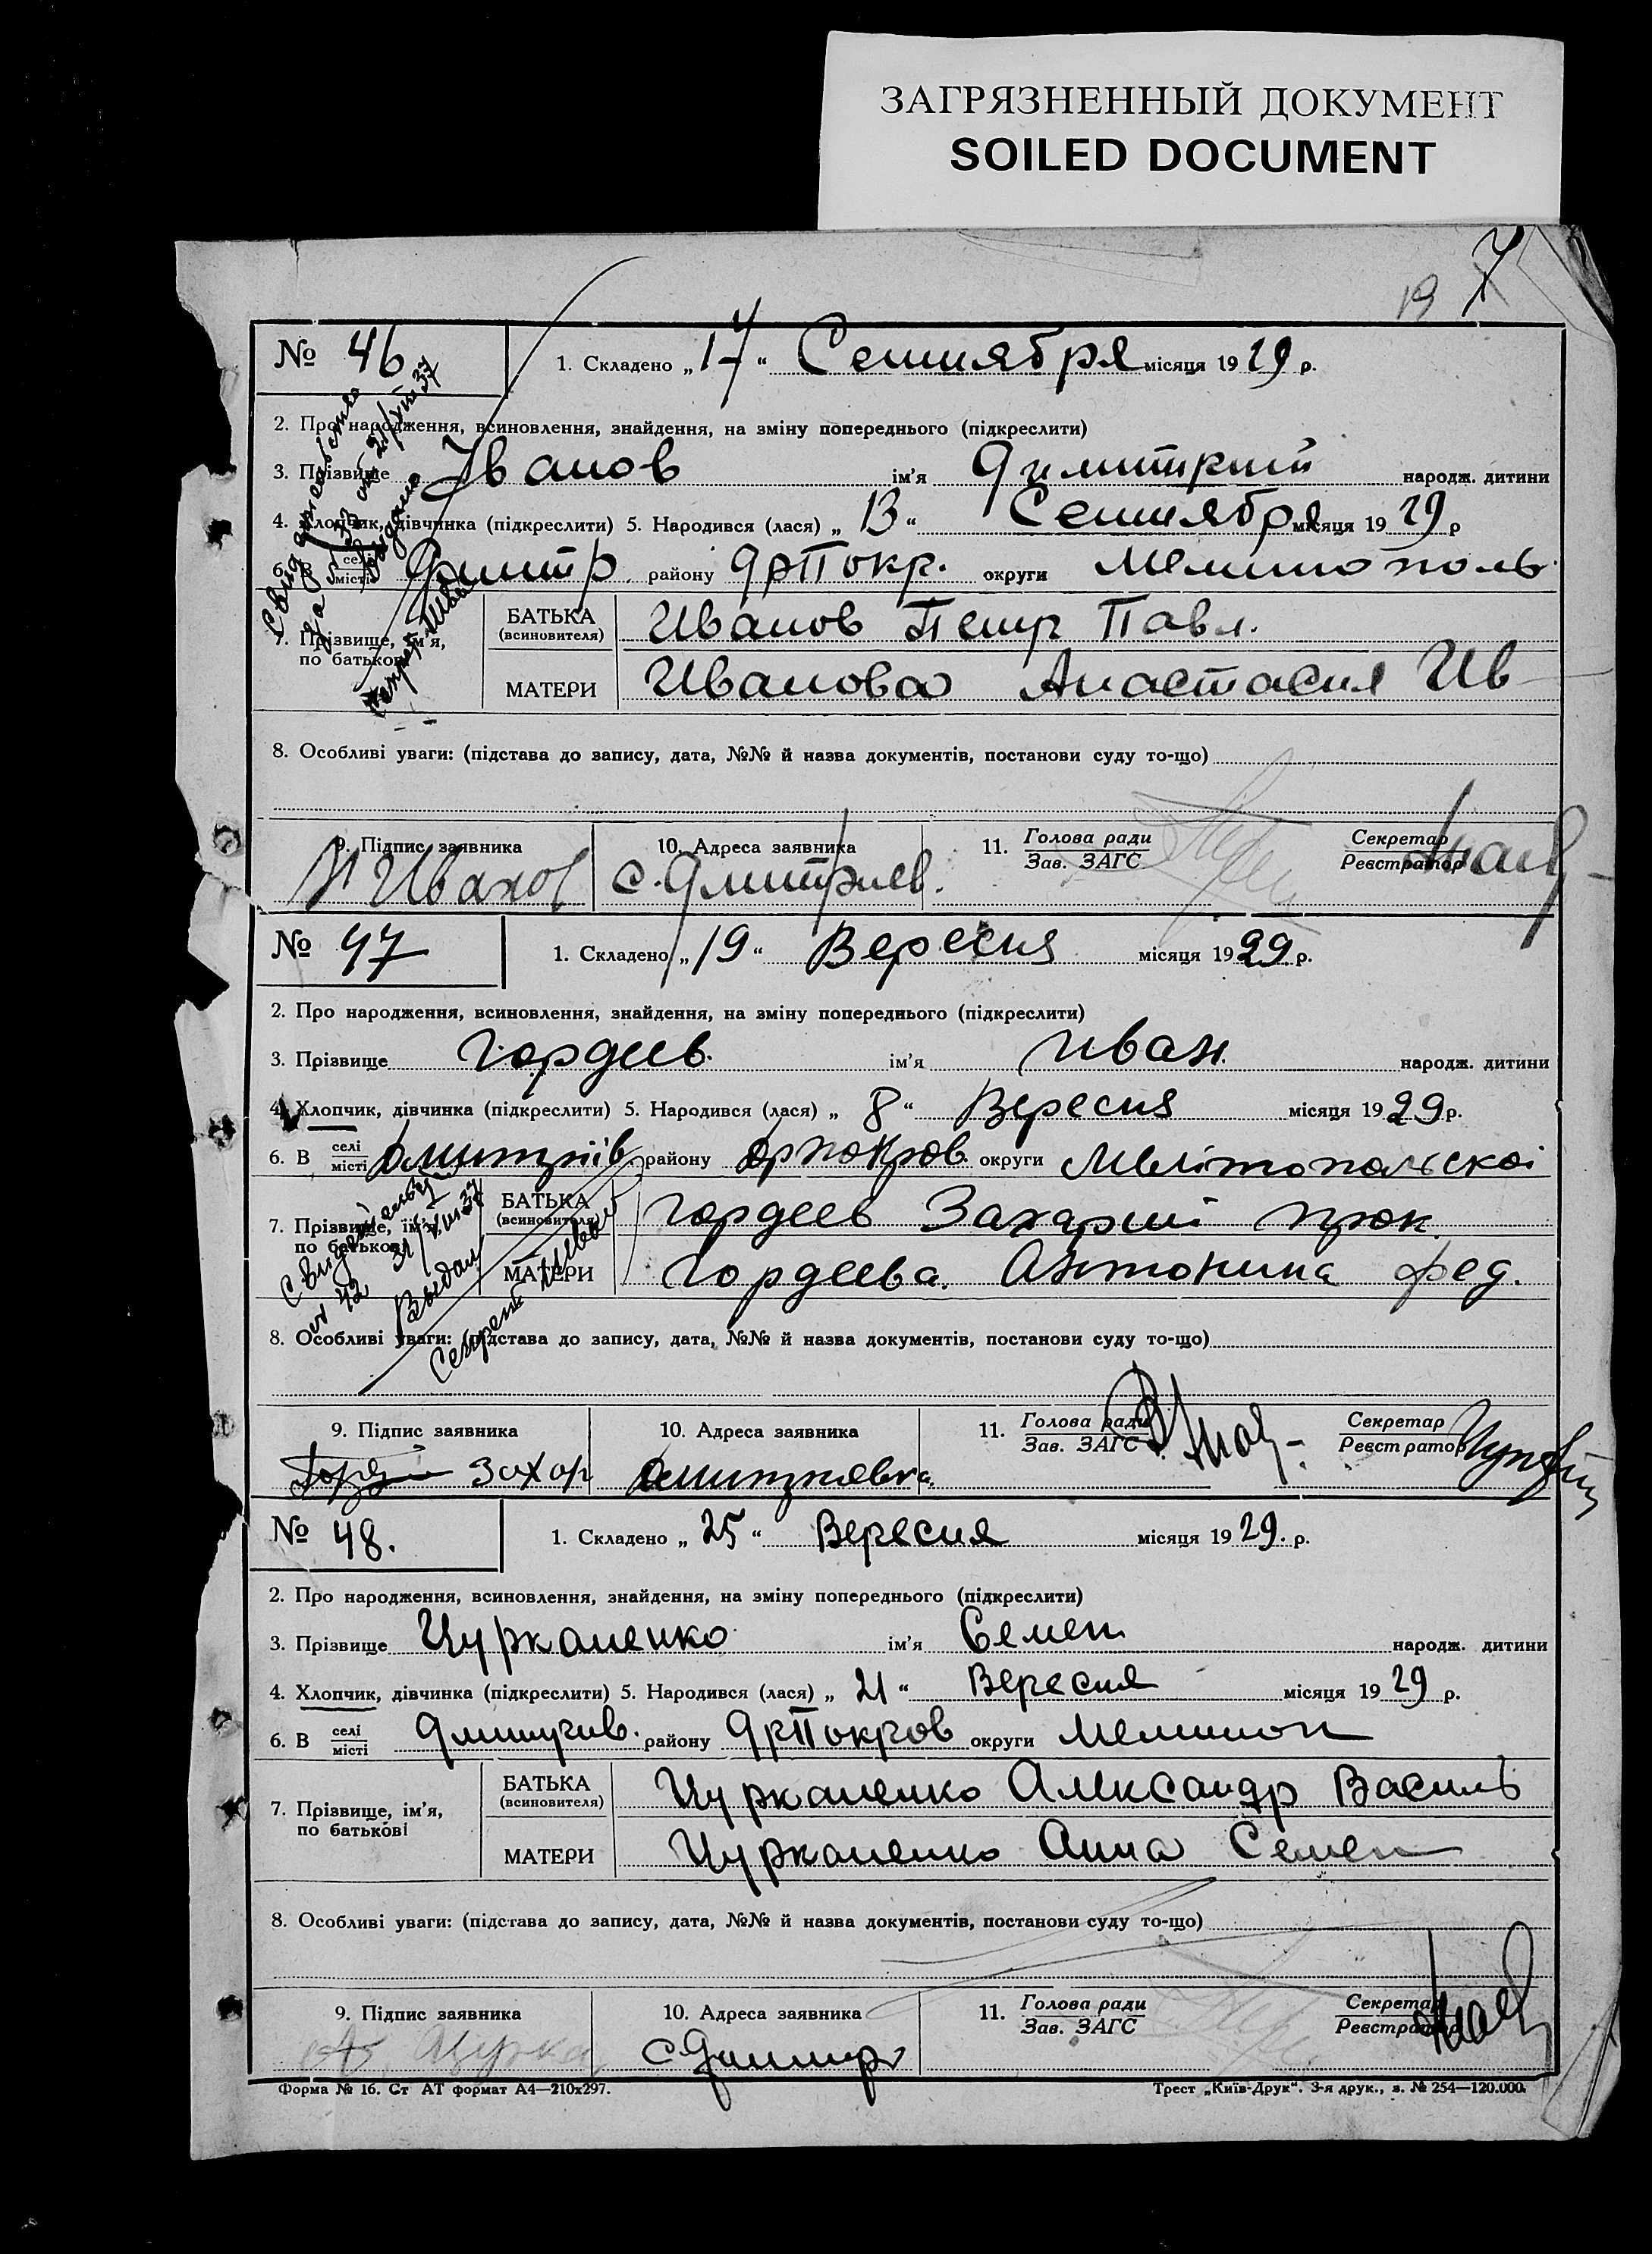 ЗАГРЯЗНЕННЫЙ ДОКУМЕНТ
SOILED DOCUMENT
19 7
№ 46
1. Складено „17“ Сентября місяця 1929 р.
2. Про народження, всиновлення, знайдення, на зміну попереднього (підкреслити)
3. Прізвище Іванов ім'я Димитрий народж. дитини
4. Хлопчик, дівчинка (підкреслити) 5. Народився (лася) „13“ Сентября місяця 1929 р
6. В селі місті Дмитр району ДрПокр. округи Мелитополь
7. Прізвище, ім'я, по батькові
БАТЬКА (всиновителя) Иванов Петр Павл.
МАТЕРИ Иванова Анастасия Ив
8. Особливі уваги: (підстава до запису, дата, №№ й назва документів, постанови суду то-що)
9. Підпис заявника 10. Адреса заявника 11. Голова ради Зав. ЗАГС Секретар Реєстратор
П Иванов с. Дмитриев.
№ 47
1. Складено „19“ Вересня місяця 1929 р.
2. Про народження, всиновлення, знайдення, на зміну попереднього (підкреслити)
3. Прізвище Гордеев. ім'я Иван. народж. дитини
4. Хлопчик, дівчинка (підкреслити) 5. Народився (лася) „8“ Вересня місяця 1929 р.
6. В селі місті Дмитріїв. району Дрпокров. округи Мелітопольскоі
7. Прізвище, ім'я, по батькові
БАТЬКА (всиновителя) Гордеев Захарий прок.
МАТЕРИ Гордеева. Антонина фед.
Выдал
8. Особливі уваги: (підстава до запису, дата, №№ й назва документів, постанови суду то-що)
9. Підпис заявника 10. Адреса заявника 11. Голова ради Зав. ЗАГС Секретар Реєстратор
Захар Дмитриевка.
№ 48.
1. Складено „25“ Вересня місяця 1929. р.
2. Про народження, всиновлення, знайдення, на зміну попереднього (підкреслити)
3. Прізвище Цурканенко ім'я Семен народж. дитини
4. Хлопчик, дівчинка (підкреслити) 5. Народився (лася) „21“ Вересня місяця 1929 р.
6. В селі місті Дмитрив. району ДрПокров округи Мелитоп
7. Прізвище, ім'я, по батькові
БАТЬКА (всиновителя) Цурканенко Александр Василь
МАТЕРИ Цурканенко Анна Семен
8. Особливі уваги: (підстава до запису, дата, №№ й назва документів, постанови суду то-що)
9. Підпис заявника 10. Адреса заявника 11. Голова ради Зав. ЗАГС Секретар Реєстратор
с Дмитр
Форма № 16. Ст АТ формат А4—210х297.
Трест „Київ-Друк“. 3-я друк., з. № 254—120.000.